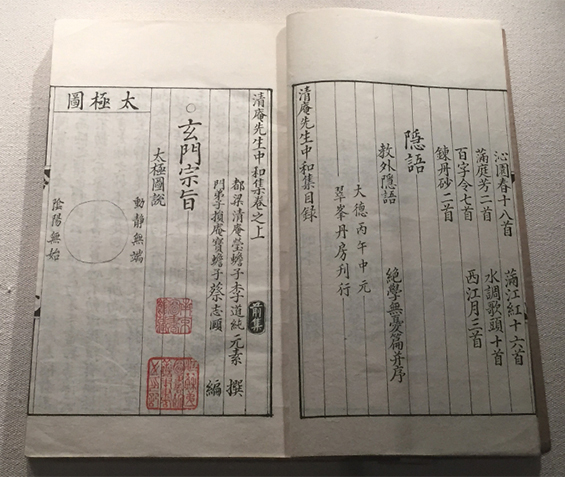 沁園春十八首　滿江紅十六首
滿庭芳二首　水調歌頭十首
百字令七首　西江月三首
鍊丹砂二首
隱語
教外隱語　絕學無憂篇并序
大德丙午中元
翠峯丹房刊行
清庵先生中和集目錄
清庵先生中和集卷之上　前集
都梁清庵瑩蟾子李道純元素　撰
門弟子損庵寶蟾子蔡志頤　編
○玄門宗旨
太極圖說
太極圖
動靜無端
陰陽無始